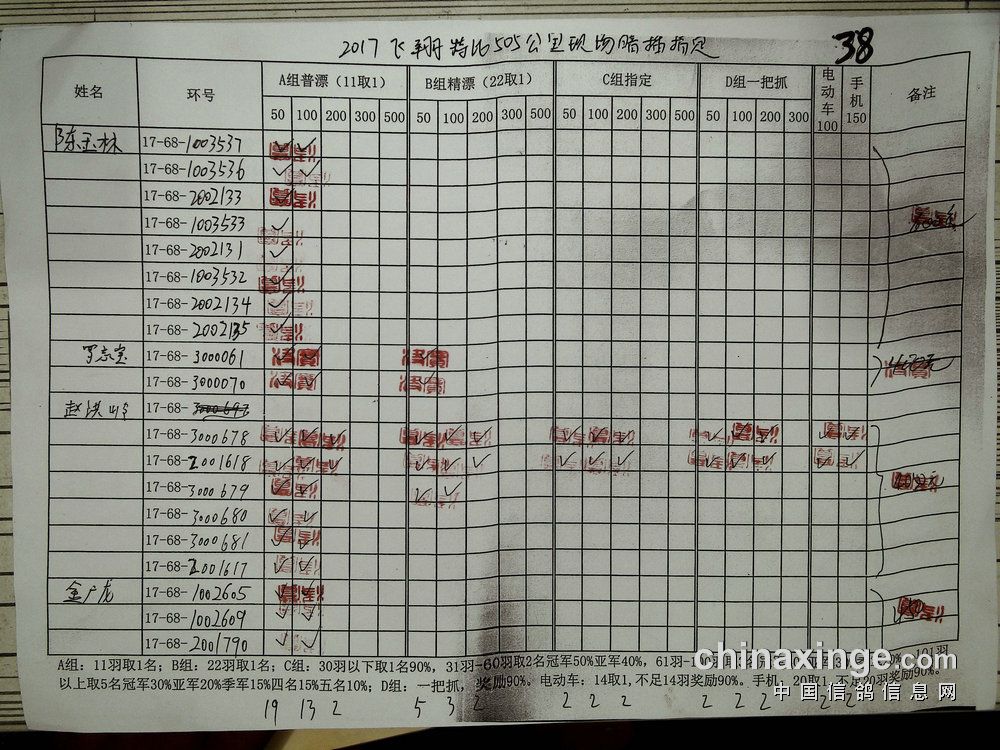 2017飞翔特比505公里现场暗插指定
38
姓名 环号 A组普漂（11取1） B组精漂（22取1） C组指定 D组一把抓 电动车100 手机150 备注
50 100 200 300 500 50 100 200 300 500 50 100 200 300 500 50 100 200 300
陈玉林 17-68-1003537 ✓ ✓
17-68-1003536 ✓ ✓
17-68-2002133
17-68-1003533 ✓
17-68-2002131 ✓
17-68-1003532 ✓
17-68-2002134 ✓
17-68-2002135 ✓
罗志宝 17-68-3000061 ✓ ✓ ✓
17-68-3000070 ✓ ✓ ✓
赵洪 17-68-
17-68-3000678 ✓ ✓ ✓ ✓ ✓ ✓ ✓ ✓ ✓ ✓ ✓ ✓ ✓ ✓
17-68-2001618 ✓ ✓ ✓ ✓ ✓ ✓ ✓ ✓ ✓ ✓ ✓ ✓ ✓ ✓
17-68-3000679 ✓ ✓ ✓ ✓
17-68-3000680 ✓ ✓
17-68-3000681 ✓ ✓
17-68-2001617 ✓
金广虎 17-68-1002605 ✓ ✓
17-68-1002609 ✓ ✓
17-68-2001790 ✓ ✓
A组：11羽取1名；B组：22羽取1名；C组：30羽以下取1名90%，31羽-60羽取2名冠军50%亚军40%，61羽-
以上取5名冠军30%亚军20%季军15%四名15%五名10%；D组：一把抓，奖励90%。电动车：14取1，不足14羽奖励90%。手机：20取1，不足20羽奖励90%。
19 13 2 5 3 2 2 2 2 2 2 2 2 2
chinaxinge.com
中国信鸽信息网